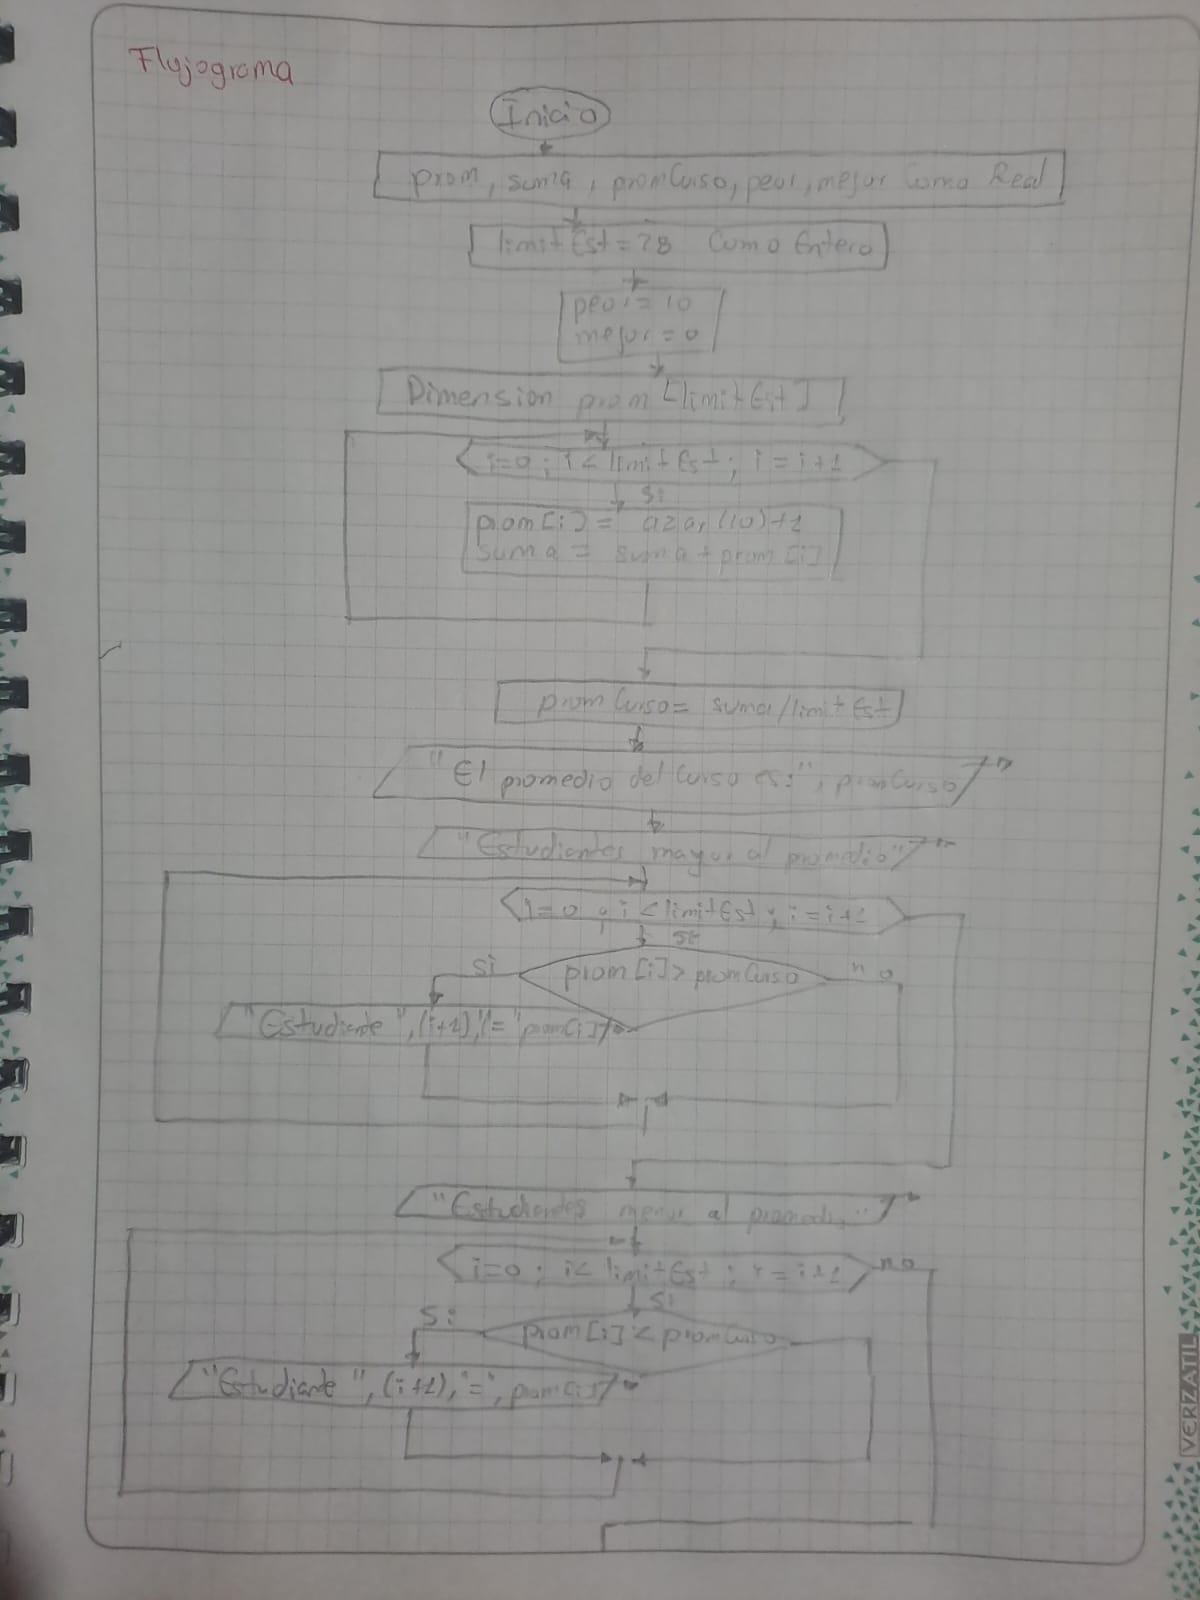 Flujograma
Inicio
prom, suma, promCurso, peor, mejor Como Real
limitEst=28 Como Entero
peor=10
mejor=0
Dimension prom [limitEst]
i=0; i<limitEst; i=i+1
si
prom[i]= azar(10)+1
suma= suma+prom[i]
promCurso= suma/limitEst
"El promedio del Curso es:", promCurso
"Estudiantes mayor al promedio"
i=0; i<limitEst; i=i+1
si
si prom[i]>promCurso no
"Estudiante ",(i+1),"=" prom[i]
"Estudiantes menor al promedio"
i=0; i<limitEst; i=i+1 no
si
si prom[i]<promCurso
"Estudiante ",(i+1),"=",prom[i]
VERZATIL